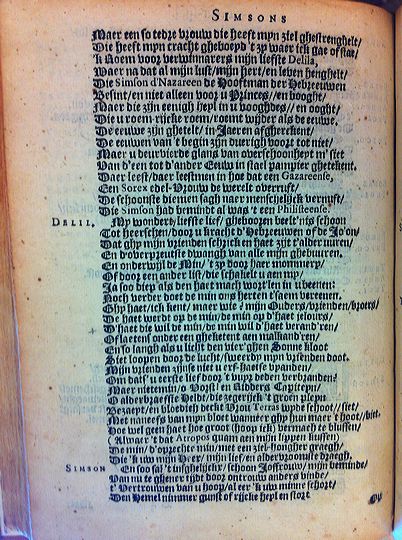 SIMSONS
Maer een so tedre vrouw die heeft mijn ziel ghestrenghelt/
Die heeft mijn cracht gheboeyd 't zy waer ick gae of stae/
'k Noem voor verwinnarers mijn liefste Delila,
Waer na dat al mijn lust/mijn hert/en leven henghelt/
Die Simson d'Nazareen de Hooftman der Hebreeuwen
Besint/en niet alleen voor u Princes//en booght/
Maer die zijn eenigh heyl in u ooghdes// en ooght/
Die u roem rijcke roem/roemt wijder als de eeuwe.
De eeuwe zijn ghetelt/in Jaeren afghereekent/
De eeuwen van 't begin zijn duerigh voort tot niet/
Maer u deurvierde glans van overschoonheyt m' siet
Van d'een tot d'ander Eeuw in stael pampier ghetekent.
Daer leest/daer leestmen in hoe dat een Gazareense,
Een Sorex edel-Vrouw de werelt overtuft/
De schoonste diemen sagh naer menschelijck vernuft/
Die Simson had bemindt al was 't een Philisteense.
DELIL. Mijn wonders/liefste lief/ghebooren beelt'nis schoon
Tot heerschen/door u kracht d'Hebreeuwen of de Jo'on/
Dat ghy mijn vrienden schrick en haet zijt t'alder uuren/
En d'overpreutste dwangh van alle mijn ghebuuren.
En onderwijl de Min/'t zy door haer mommery/
Of door een ander list/die schakelt u aen my/
Ja soo diep als den haet mach wort'len in u beenen:
Noch verder doet de min ons herten t'saem vereenen.
Ghy haet/ick kent/maer wie? mijn Ouders/vrienden/broers/
De haet werd op de min/de min op d'haet jelours/
D'haet die wil de min/de min wil d'haet verand'ren/
Of laetens onder een ghekettent aen malkand'ren/
En so langh als u licht den vier'ghen Sonne kloot
Siet loopen door de lucht/sweerdy mijn vrienden doot.
Mijn vrienden zijnse niet u erf-haetse vyanden/
Om dats' u eerste lief door 't vuyr deden verbranden?
Maer nietemin/o Vorst! en Ridders Capiteyn/
O alderbraefste Heldt/die zegerijck 't groen pleyn
Bezaeyt/en bloedich verst Vrou Terras wyde schoot//siet/
Met naneefs van mijn bloet wanneer ghy hun maer t'hoot//biet.
Hoe wel geen haet hoe groot (hoop ick) vermach te blussen/
(Alwaer 't dat Atropos quam aen mijn lippen kussen)
De min/d'oprechte min/met een ziel-hongher graegh/
Die 'k uw mijn Heer/mijn lief/en alderbroomste draegh.
SIMSON En soo sal 't insghelijckx/schoon Joffrouw/mijn beminde/
Van nu te ghener tijdt door ontrouw anders vinde/
't Vertrouwen van u hoop/al eer 'k uw minne schort/
Den Hemel nimmer gunst of rijcke heyl en stort